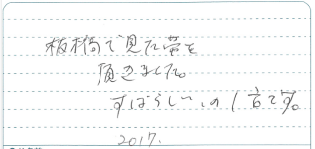 板橋で見た帯を
頂きました。
すばらしいの1言です。
2017.